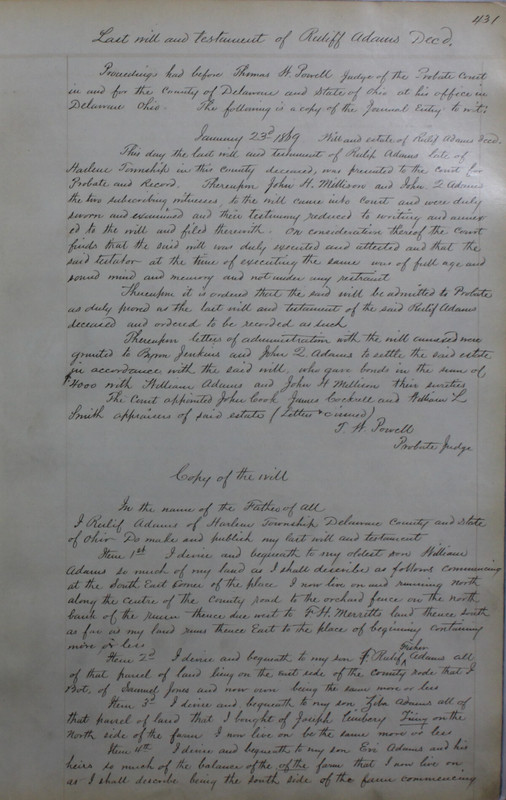 431
Last will and testament of Ruliff Adams Decd.
Proceedings had before Thomas W. Powell Judge of the Probate Court
in and for the County of Delaware and State of Ohio at his office in
Delaware Ohio. The following is a copy of the Journal Entry to wit;
January 23d 1869 Will and estate of Rulif Adams Decd.
This day the last will and testament of Rulif Adams late of
Harlem Township in this county deceased, was presented to the court for
Probate and Record. Thereupon John H. Mellison and John Q Adams
the two subscribing witnesses, to the will came into Court and were duly
sworn and examined and their testimony reduced to writing and annex
ed to the will and filed therewith. On consideration thereof the Court
finds that the said will was duly executed and attested and that the
said testator at the time of executing the same was of full age and
sound mind and memory and not under any restraint
Thereupon it is ordered that the said will be admitted to Probate
as duly proved as the last will and testament of the said Rulif Adams
deceased and ordered to be recorded as such
Thereupon letters of administration with the will annexed were
granted to Jenkins and John Q Adams to settle the said estate
in accordance with the said will, who gave bonds in the sum of
$4000 with William Adams and John H Mellison their sureties
The Court appointed John Cook James Cockrell and William L
Smith appraisers of said estate (Letters issued)
T. W. Powell
Probate Judge
Copy of the will
In the name of the Father of all
I Rulif Adams of Harlem Township Delaware County and State
of Ohio Do make and publish my last will and testament
Item 1st I devise and bequeath to my oldest son William
Adams so much of my land as I shall describe as follows commencing
at the South East corner of the place I now live on and running North
along the centre of the County road to the orchard fence on the north
bank of the thence due west to F. H. Merretts land thence south
as far as my land runs thence East to the place of beginning containing
more or less
Item 2d I devise and bequeath to my son Rulif Adams all
of that parcel of land lying on the east side of the county rode that I
Bot. of Samuel Jones and now own being the same more or less
Item 3d I devise and bequeath to my son Ziba Adams all of
that parcel of land that I bought of Joseph lying on the
North side of the farm I now live on be the same more or less
Item 4th I devise and bequeath to my son Eve Adams and his
heirs so much of the balance of the of the farm that I now live on
as I shall describe being the south side of the farm commencing